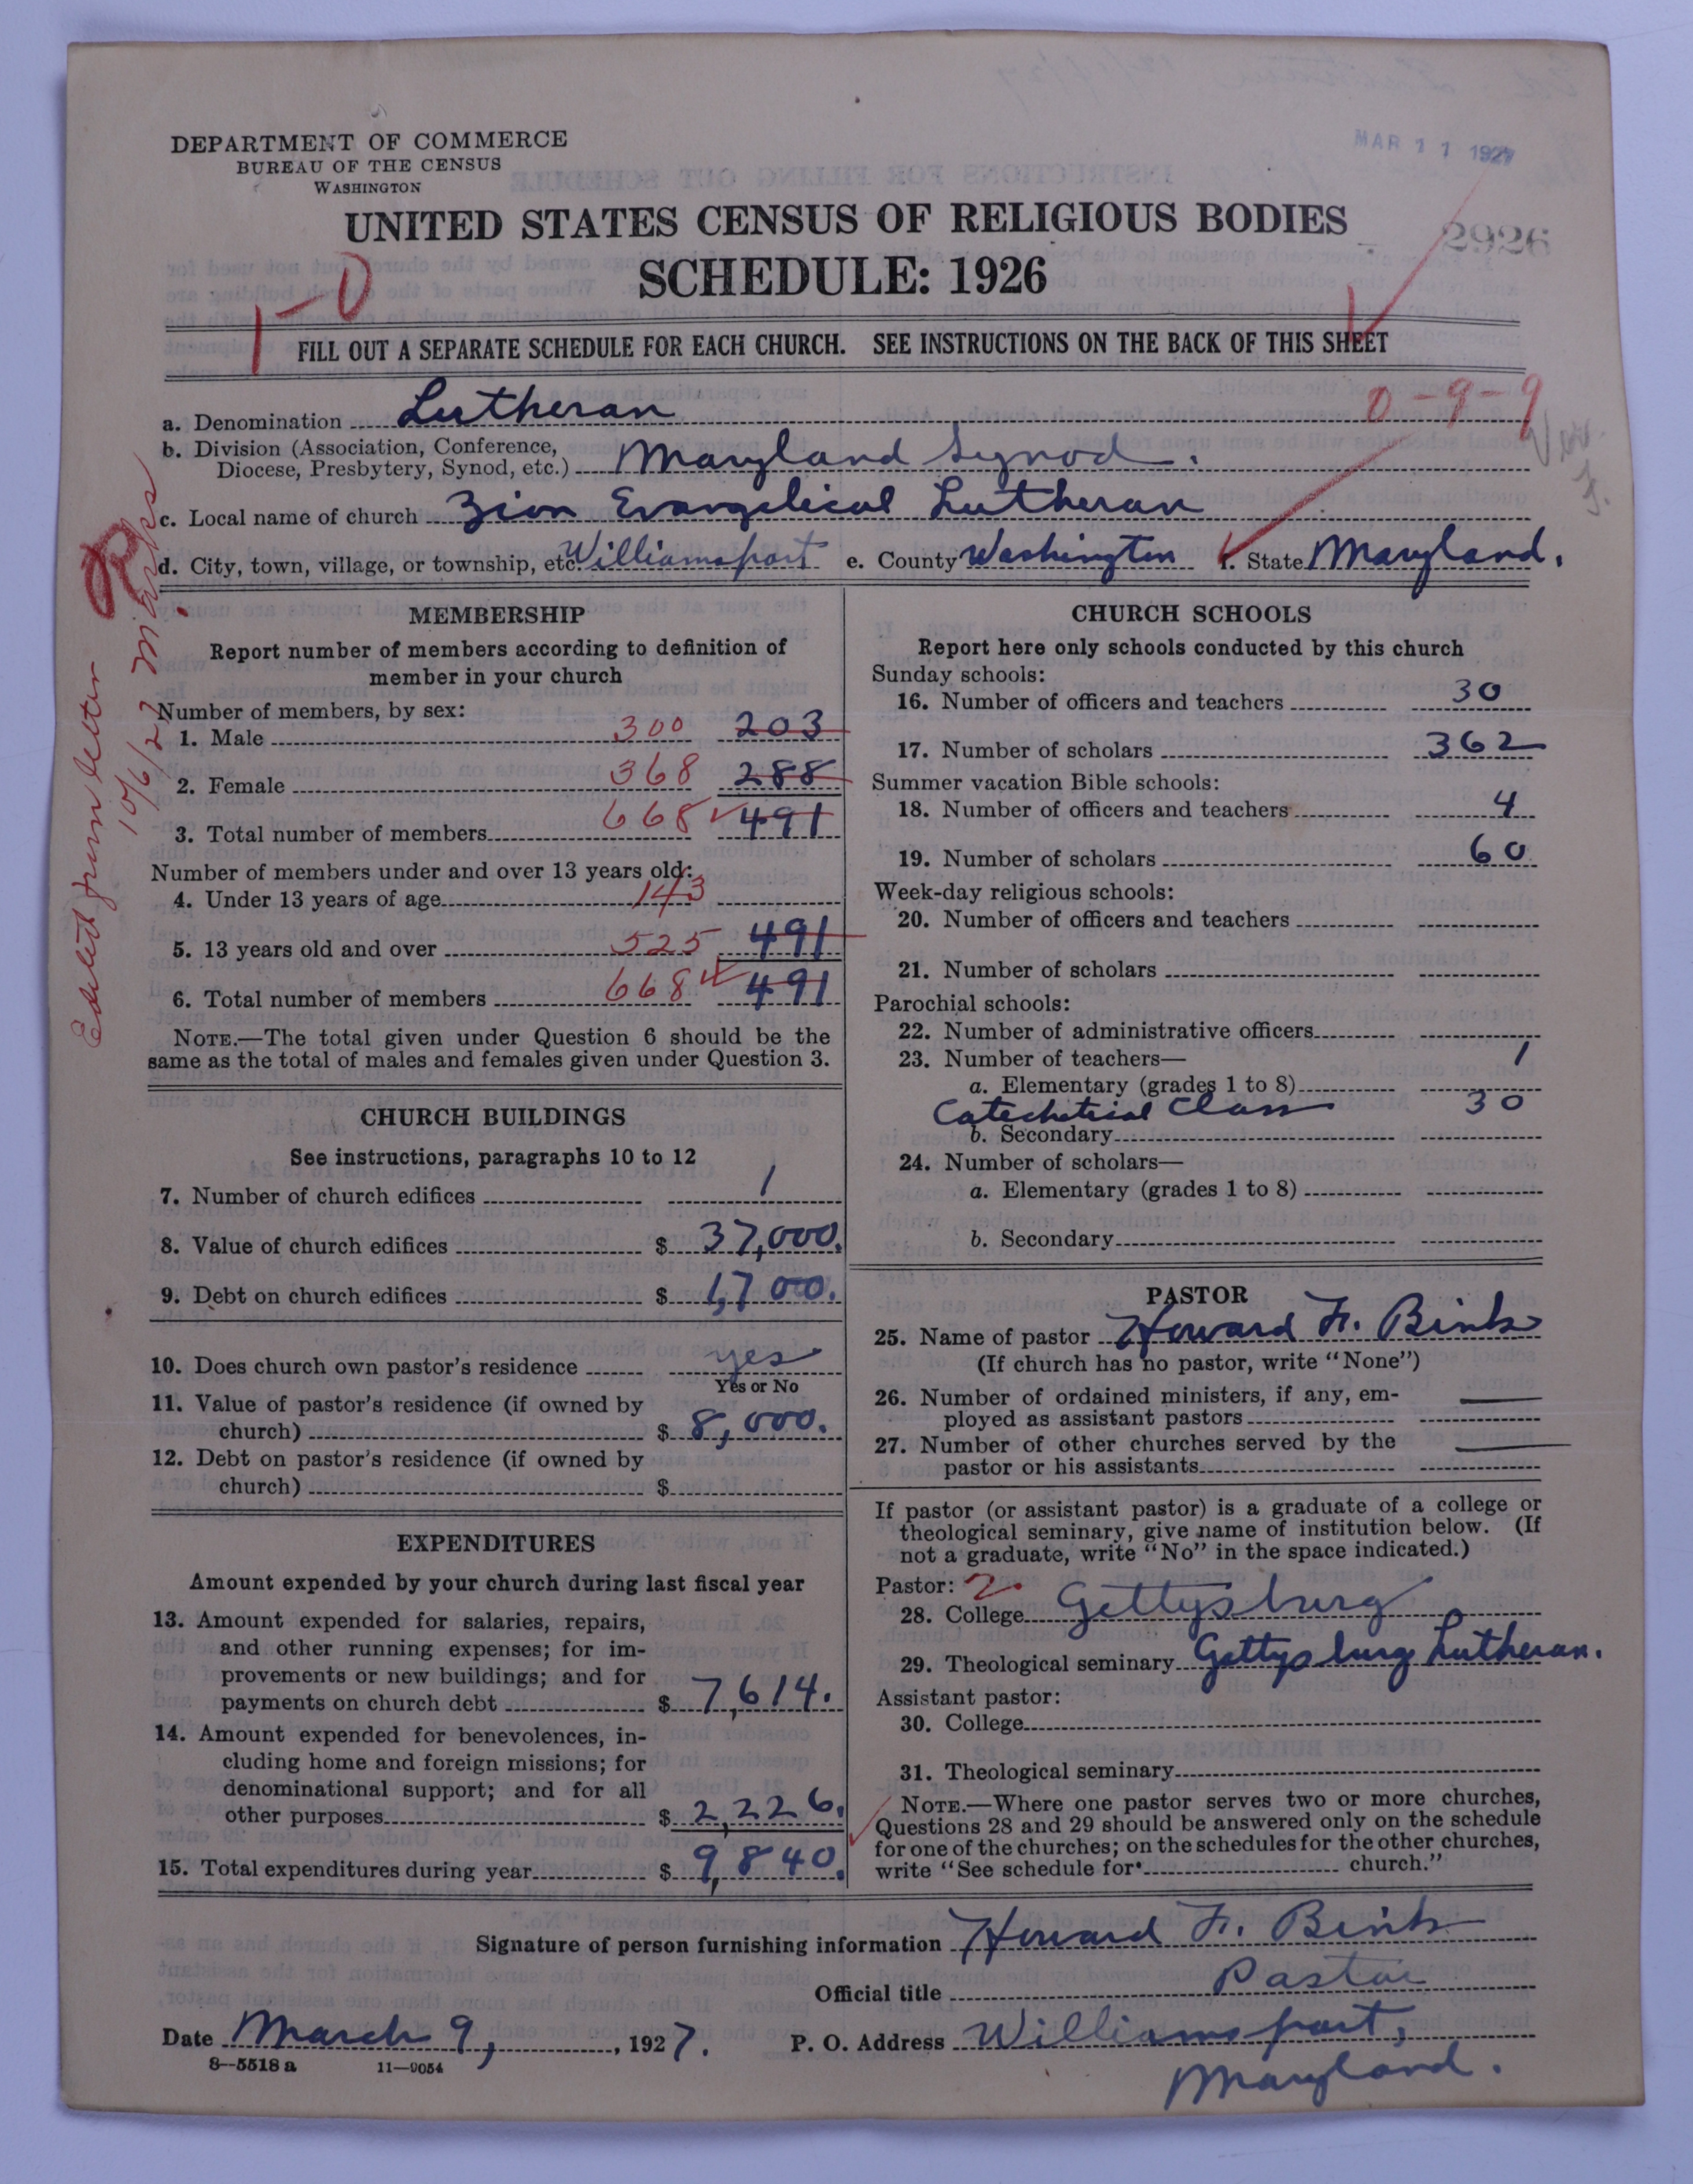 MAR 11 1927
DEPARTMENT OF COMMERCE
BUREAU OF THE CENSUS
WASHINGTON
UNITED STATES CENSUS OF RELIGIOUS BODIES
2926
SCHEDULE: 1926
1-0
FILL OUT A SEPARATE SCHEDULE FOR EACH CHURCH. SEE INSTRUCTIONS ON THE BACK OF THIS SHEET
0-9-9
a. Denomination Lutheran
b. Division (Association, Conference,
Diocese, Presbytery, Synod, etc.) Maryland Synod.
c. Local name of church Zion Evangelical Lutheran
d. City, town, village, or township, etc. Williamsport e. County Washington f. State Maryland.
Edited from letter
10/6/27
MEMBERSHIP
Report number of members according to definition of
member in your church
Number of members, by sex:
1. Male 300 203
2. Female 368 288
3. Total number of members 668 491
Number of members under and over 13 years old:
4. Under 13 years of age 143
5. 13 years old and over 525 491
6. Total number of members 668 491
NOTE.—The total given under Question 6 should be the
same as the total of males and females given under Question 3.
CHURCH BUILDINGS
See instructions, paragraphs 10 to 12
7. Number of church edifices 1
8. Value of church edifices $ 37,000.
9. Debt on church edifices $ 1,700.
10. Does church own pastor's residence yes
Yes or No
11. Value of pastor's residence (if owned by
church) $ 8,000.
12. Debt on pastor's residence (if owned by
church) $
EXPENDITURES
Amount expended by your church during last fiscal year
13. Amount expended for salaries, repairs,
and other running expenses; for im-
provements or new buildings; and for
payments on church debt $ 7,614.
14. Amount expended for benevolences, in-
cluding home and foreign missions; for
denominational support; and for all
other purposes $ 2,226.
15. Total expenditures during year $ 9,840.
CHURCH SCHOOLS
Report here only schools conducted by this church
Sunday schools:
16. Number of officers and teachers 30
17. Number of scholars 362
Summer vacation Bible schools:
18. Number of officers and teachers 4
19. Number of scholars 60
Week-day religious schools:
20. Number of officers and teachers
21. Number of scholars
Parochial schools:
22. Number of administrative officers
23. Number of teachers—
a. Elementary (grades 1 to 8) 1
Catechetical Class 30
b. Secondary
24. Number of scholars—
a. Elementary (grades 1 to 8)
b. Secondary
PASTOR
25. Name of pastor Howard F. Bink
(If church has no pastor, write "None")
26. Number of ordained ministers, if any, em-
ployed as assistant pastors —
27. Number of other churches served by the
pastor or his assistants —
If pastor (or assistant pastor) is a graduate of a college or
theological seminary, give name of institution below. (If
not a graduate, write "No" in the space indicated.)
Pastor: 2
28. College Gettysburg
29. Theological seminary Gettysburg Lutheran.
Assistant pastor:
30. College
31. Theological seminary
NOTE.—Where one pastor serves two or more churches,
Questions 28 and 29 should be answered only on the schedule
for one of the churches; on the schedules for the other churches,
write "See schedule for church."
Signature of person furnishing information Howard F. Bink
Official title Pastor
Date March 9, 1927. P. O. Address Williamsport,
Maryland.
8-5518 a 11-9054